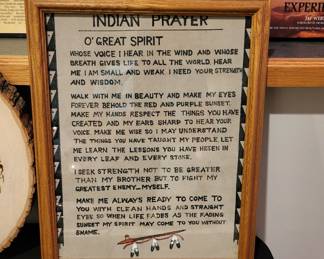 EXPERIEN
INDIAN PRAYER
O' GREAT SPIRIT
WHOSE VOICE I HEAR IN THE WIND AND WHOSE
BREATH GIVES LIFE TO ALL THE WORLD, HEAR
ME I AM SMALL AND WEAK I NEED YOUR STRENGTH
AND WISDOM.
WALK WITH ME IN BEAUTY AND MAKE MY EYES
FOREVER BEHOLD THE RED AND PURPLE SUNSET.
MAKE MY HANDS RESPECT THE THINGS YOU HAVE
CREATED AND MY EARS SHARP TO HEAR YOUR
VOICE. MAKE ME WISE SO I MAY UNDERSTAND
THE THINGS YOU HAVE TAUGHT MY PEOPLE, LET
ME LEARN THE LESSONS YOU HAVE HIDEN IN
EVERY LEAF AND EVERY STONE.
I SEEK STRENGTH NOT TO BE GREATER
THAN MY BROTHER BUT TO FIGHT MY
GREATEST ENEMY...MYSELF.
MAKE ME ALWAYS READY TO COME TO
YOU WITH CLEAN HANDS AND STRAIGHT
EYES SO WHEN LIFE FADES AS THE FADING
SUNSET MY SPIRIT MAY COME TO YOU WITHOUT
SHAME.